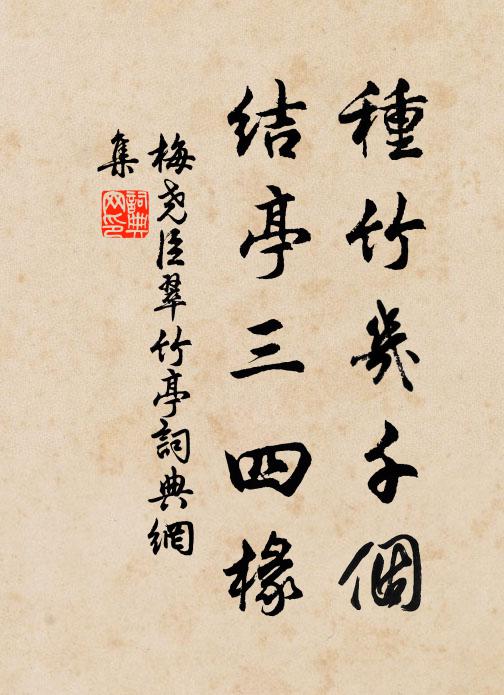 種竹幾千個
結亭三四椽
梅堯臣翠竹亭詞典網
集
詞典
网印